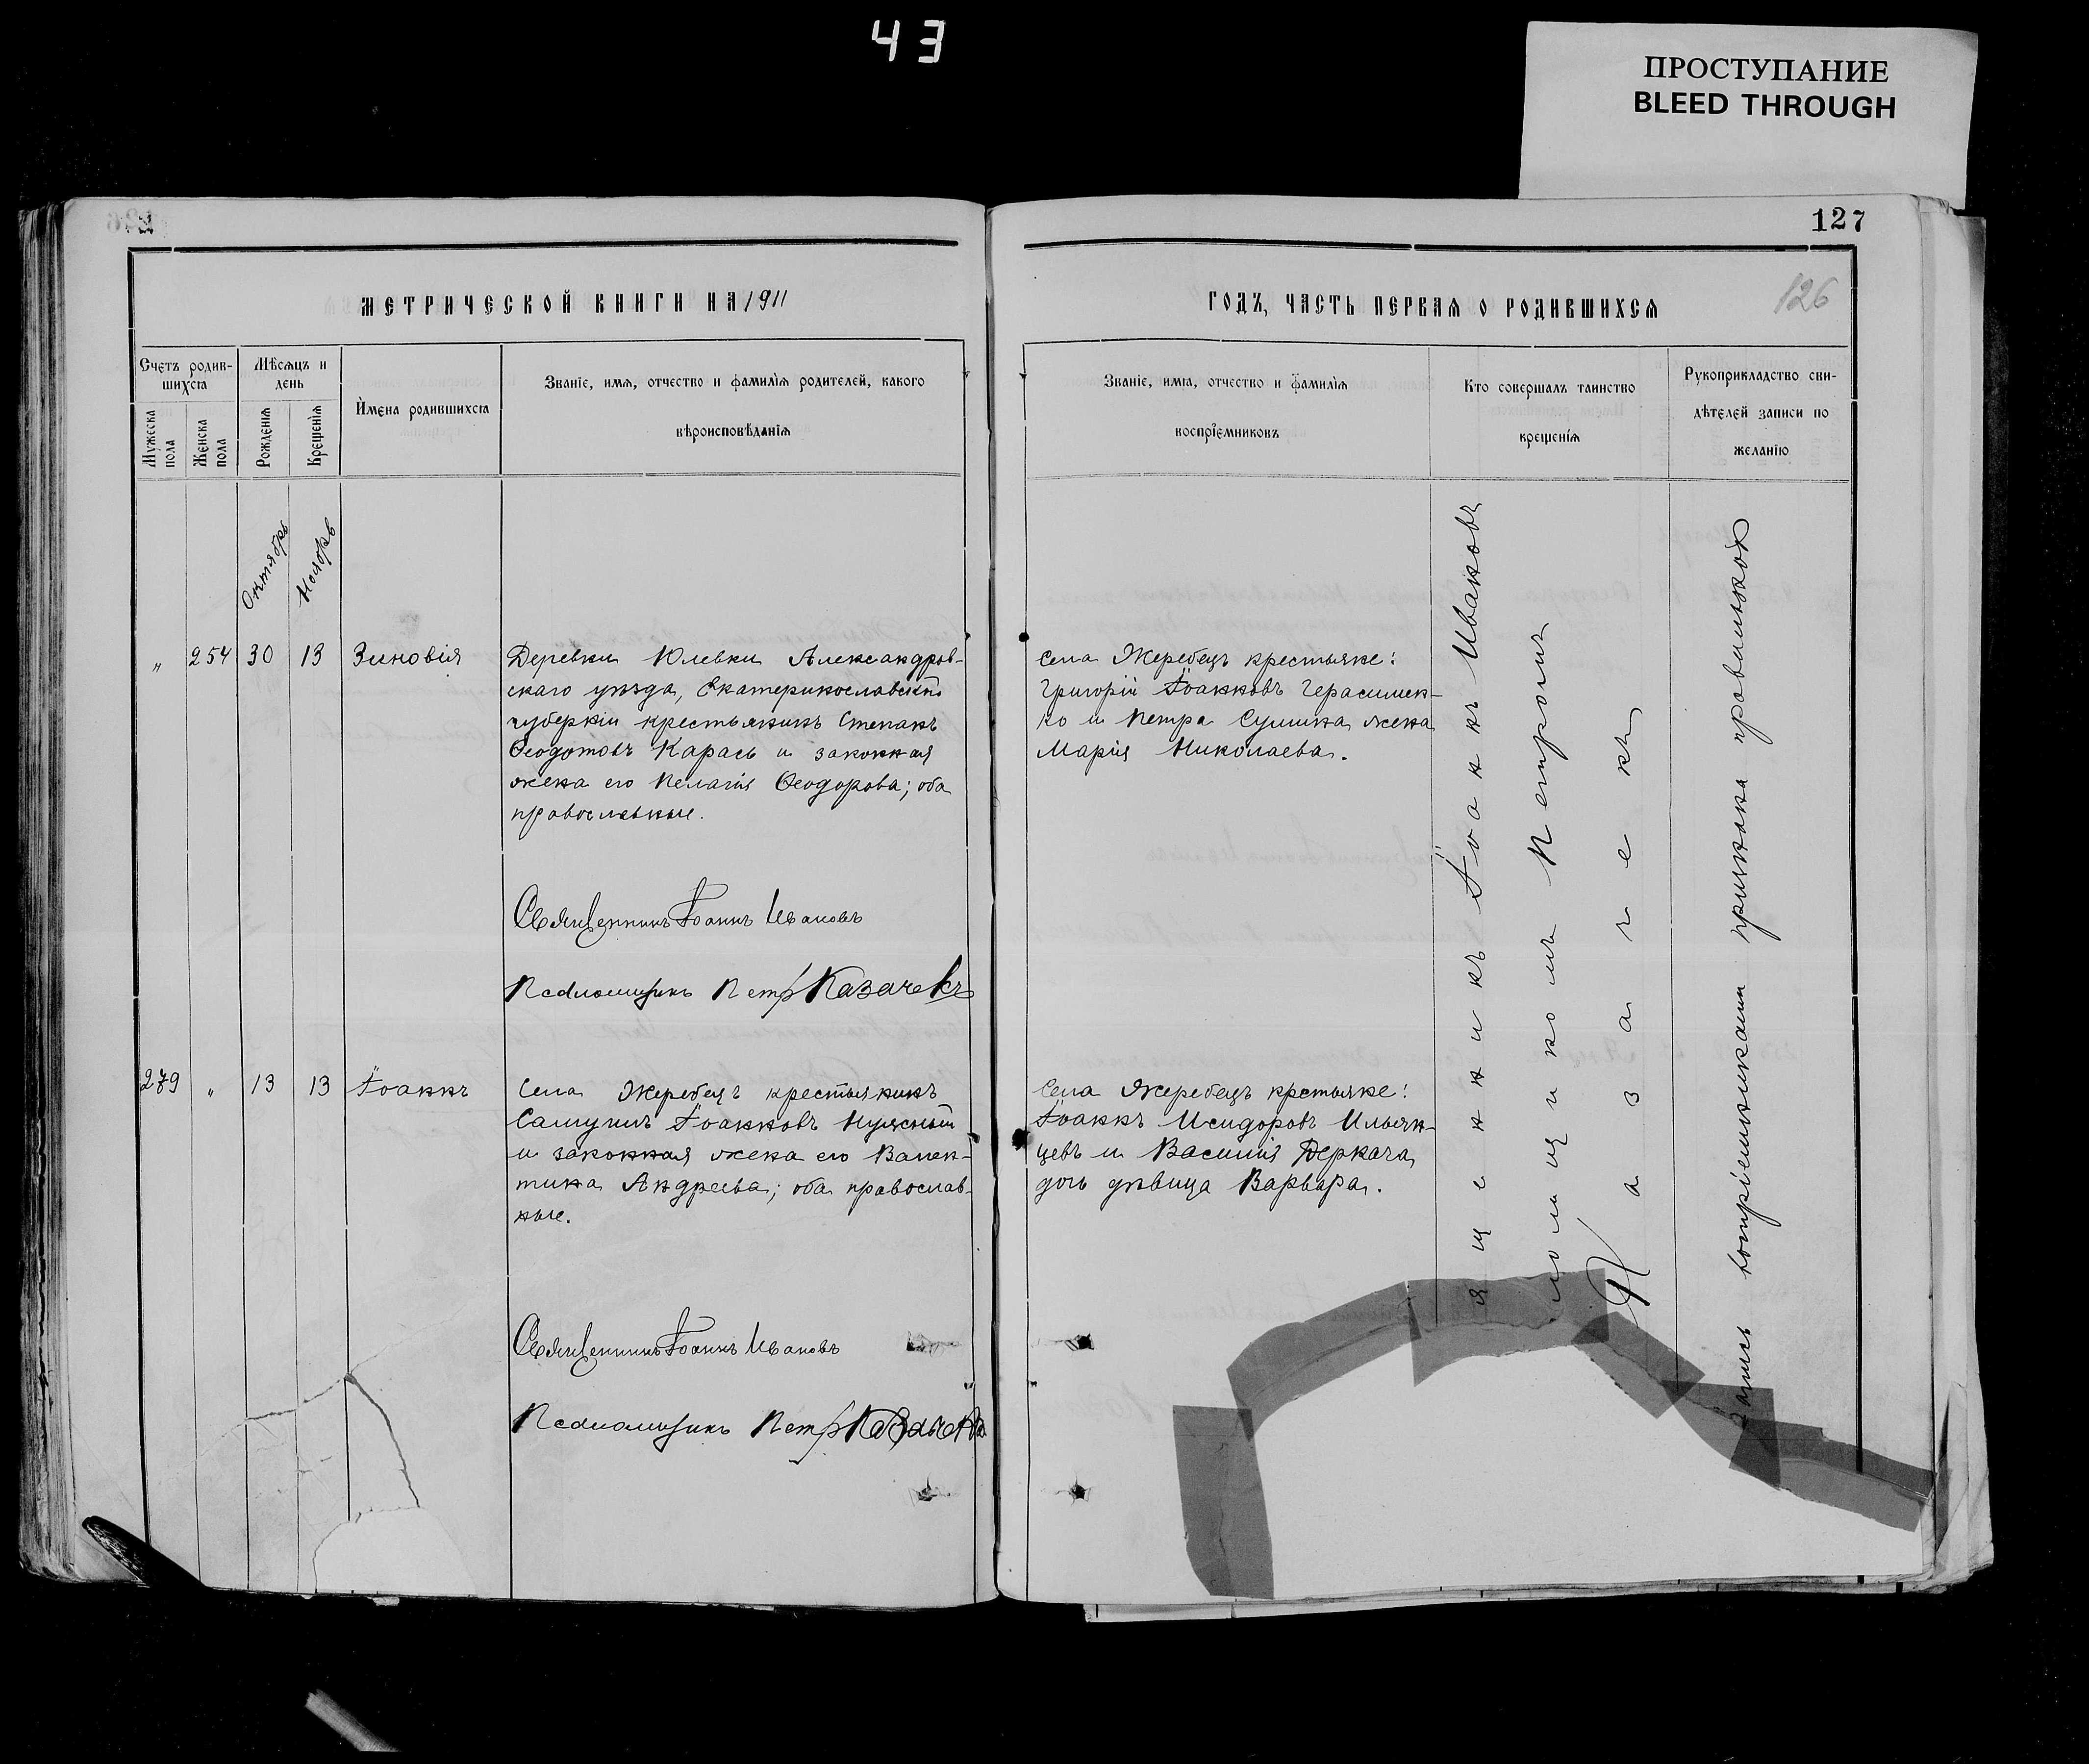 43
ПРОСТУПАНИЕ
BLEED THROUGH
127
126
МЕТРИЧЕСКОЙ КНИГИ НА 1911
ГОДЪ, ЧАСТЬ ПЕРВАЯ О РОДИВШИХСЯ
Счетъ родив-
шихся
Мѣсяцъ и
день
Мужеска
пола
Женска
пола
Рожденія
Крещенія
Имена родившихся
Званіе, имя, отчество и фамилія родителей, какого
вѣроисповѣданія
Званіе, имя, отчество и фамилія
воспріемниковъ
Кто совершалъ таинство
крещенія
Рукоприкладство сви-
дѣтелей записи по
желанію
Октябрь
Ноябрь
„ 254 30 13 Зиновія
Деревни Юлевки Александров-
скаго уѣзда, Екатеринославской
губерніи крестьянинъ Степанъ
Ѳеодотовъ Карась и законная
жена его Пелагія Ѳеодорова; оба
православные.
Священникъ Іоаннъ Ивановъ
Псаломщикъ Петръ Казачекъ
Села Жеребецъ крестьяне:
Григорій Іоанновъ Герасимен-
ко и Петра Сушка жена
Марія Николаева.
279 „ 13 13 Іоаннъ
Села Жеребецъ крестьянинъ
Самуилъ Іоанновъ Нужный
и законная жена его Вален-
тина Андреева; оба православ-
ные.
Священникъ Іоаннъ Ивановъ
Псаломщикъ Петръ Казачекъ
Села Жеребецъ крестьяне:
Іоаннъ Исидоровъ Ильян-
цевъ и Василія Деркача
дочь дѣвица Варвара.
ященникъ Іоаннъ Ивановъ
ломщикомъ Петромъ
Казачекъ
запись воспріемниками признана правильной